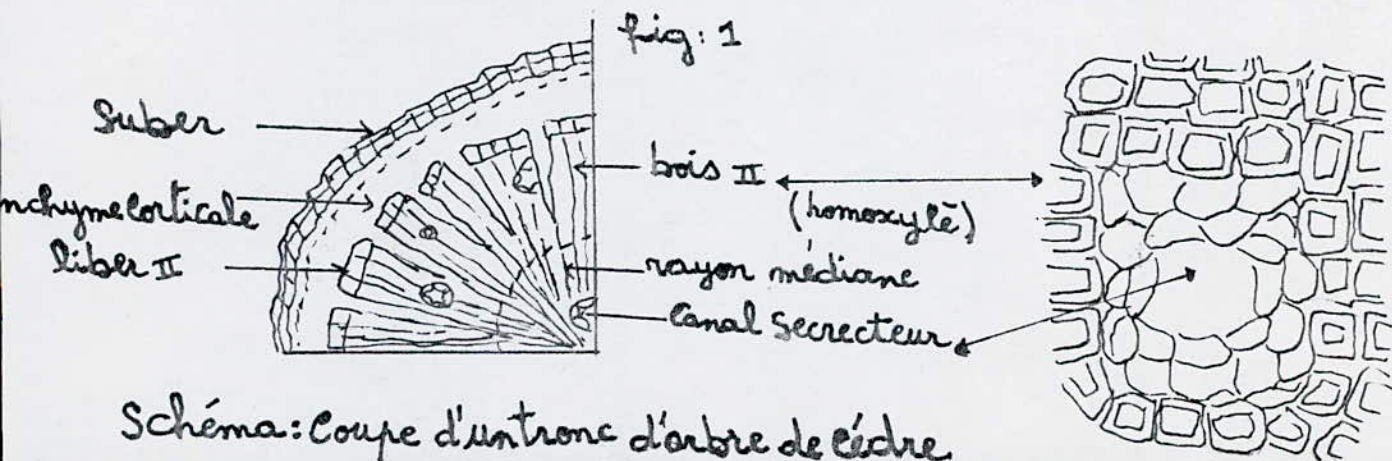 fig: 1
Suber
nchyme corticale
liber II
bois II
(homoxylē)
rayon médiane
Canal Secrecteur
Schéma: Coupe d'un tronc d'arbre de Cédre